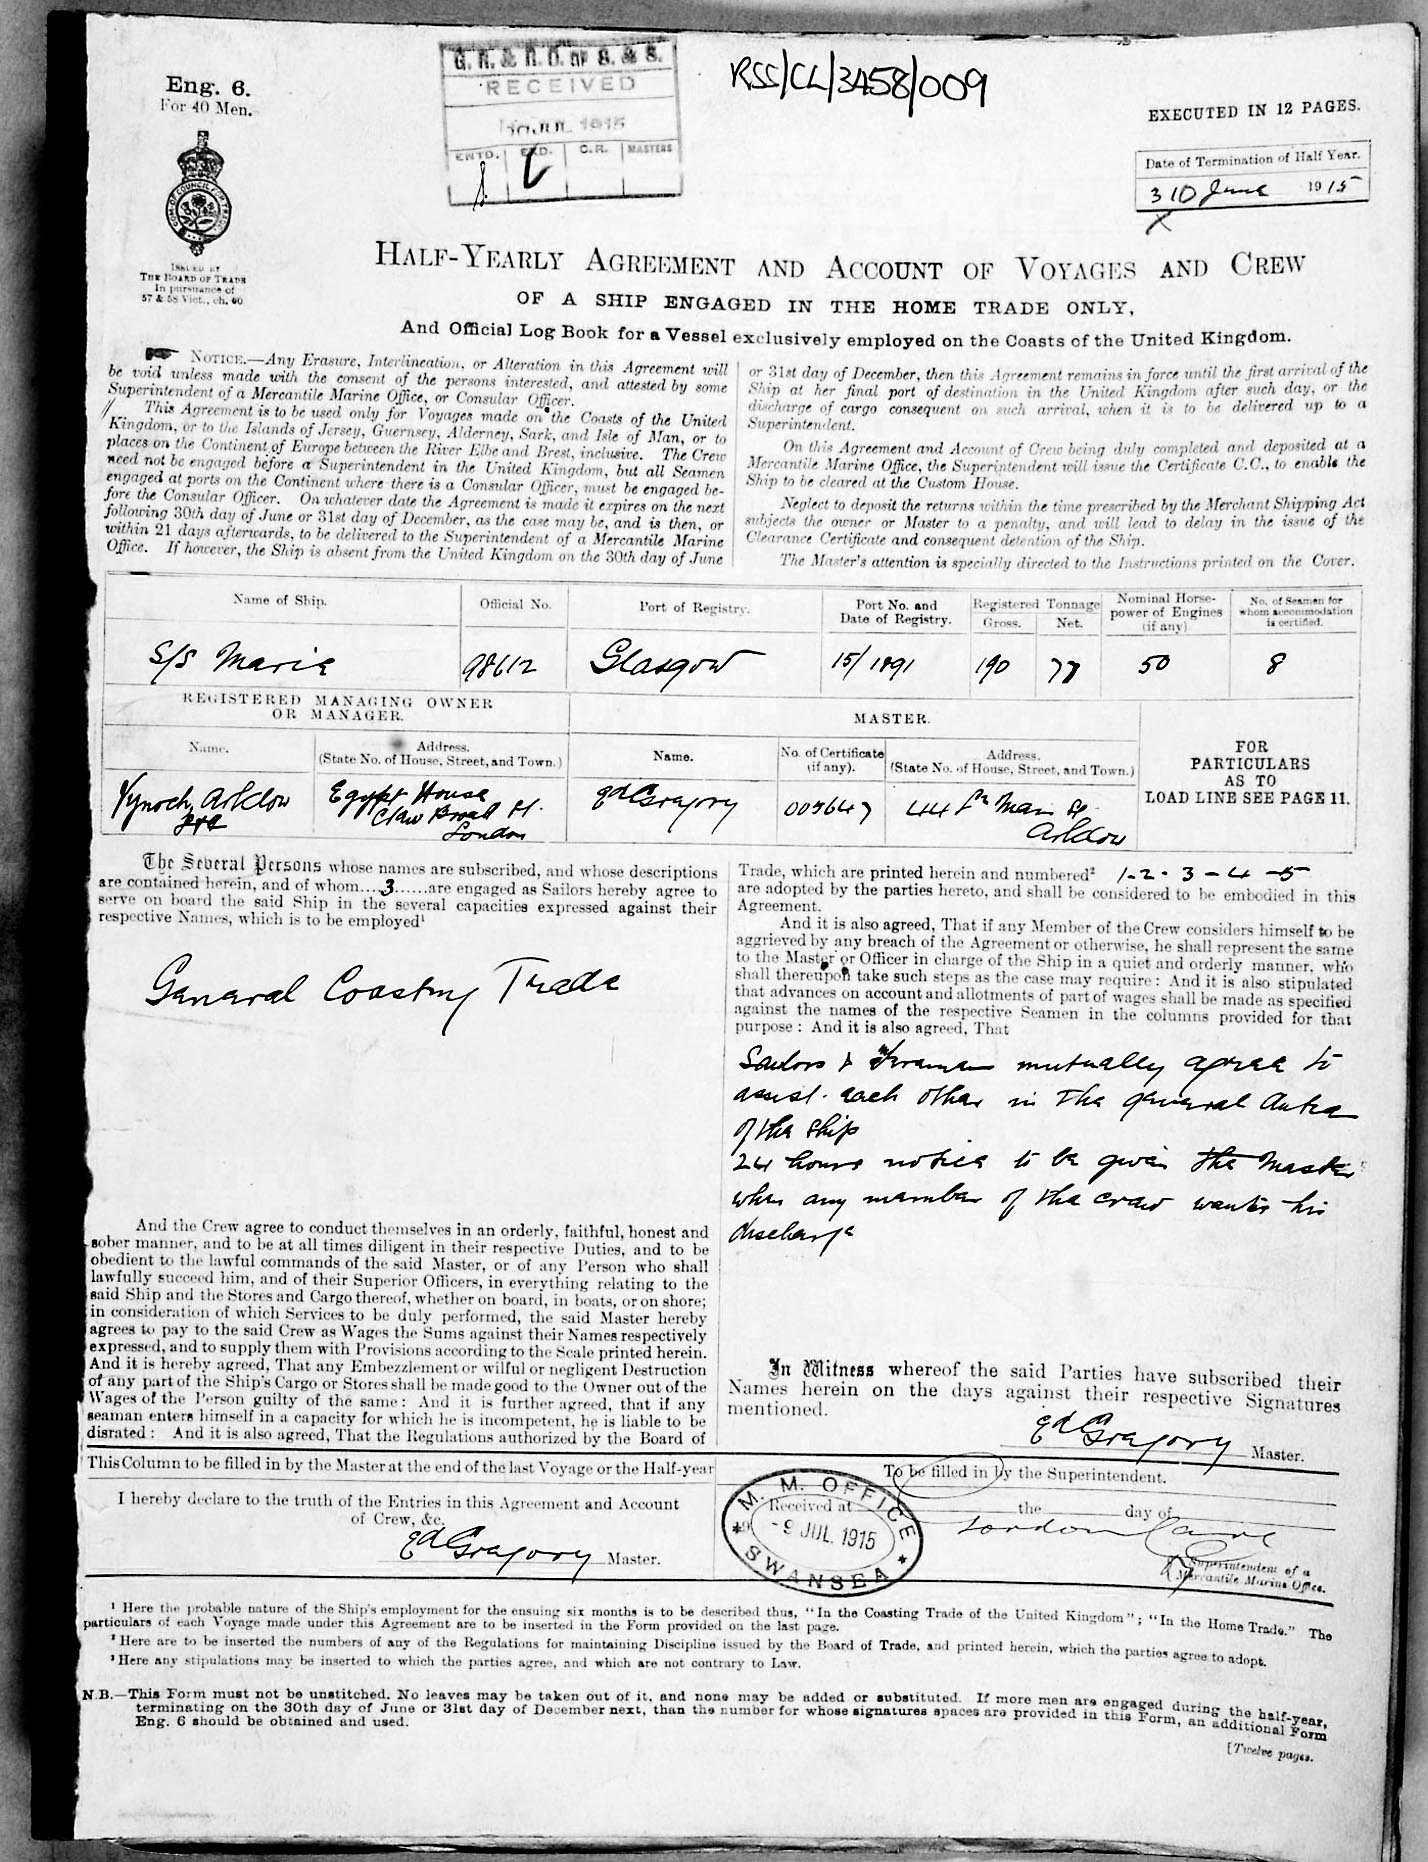 G. R. & R. O. OF S. & S.
RECEIVED
JUL 1915
ENTD. EXD. C.R. MASTERS
RSS/CL/3458/009
Eng. 6.
For 40 Men.
EXECUTED IN 12 PAGES.
Date of Termination of Half Year.
30 June 1915
ISSUED BY
THE BOARD OF TRADE
In pursuance of
57 & 58 Vict., ch. 60
HALF-YEARLY AGREEMENT AND ACCOUNT OF VOYAGES AND CREW
OF A SHIP ENGAGED IN THE HOME TRADE ONLY,
And Official Log Book for a Vessel exclusively employed on the Coasts of the United Kingdom.
NOTICE.—Any Erasure, Interlineation, or Alteration in this Agreement will
be void unless made with the consent of the persons interested, and attested by some
Superintendent of a Mercantile Marine Office, or Consular Officer.
This Agreement is to be used only for Voyages made on the Coasts of the United
Kingdom, or to the Islands of Jersey, Guernsey, Alderney, Sark, and Isle of Man, or to
places on the Continent of Europe between the River Elbe and Brest, inclusive. The Crew
need not be engaged before a Superintendent in the United Kingdom, but all Seamen
engaged at ports on the Continent where there is a Consular Officer, must be engaged be-
fore the Consular Officer. On whatever date the Agreement is made it expires on the next
following 30th day of June or 31st day of December, as the case may be, and is then, or
within 21 days afterwards, to be delivered to the Superintendent of a Mercantile Marine
Office. If however, the Ship is absent from the United Kingdom on the 30th day of June
or 31st day of December, then this Agreement remains in force until the first arrival of the
Ship at her final port of destination in the United Kingdom after such day, or the
discharge of cargo consequent on such arrival, when it is to be delivered up to a
Superintendent.
On this Agreement and Account of Crew being duly completed and deposited at a
Mercantile Marine Office, the Superintendent will issue the Certificate C.C., to enable the
Ship to be cleared at the Custom House.
Neglect to deposit the returns within the time prescribed by the Merchant Shipping Act
subjects the owner or Master to a penalty, and will lead to delay in the issue of the
Clearance Certificate and consequent detention of the Ship.
The Master's attention is specially directed to the Instructions printed on the Cover.
Name of Ship. Official No. Port of Registry. Port No. and Date of Registry. Registered Tonnage Gross. Net. Nominal Horse-power of Engines (if any) No. of Seamen for whom accommodation is certified.
S/S Maria 98612 Glasgow 15/1891 190 77 50 8
REGISTERED MANAGING OWNER
OR MANAGER.
MASTER.
Name. Address. (State No. of House, Street, and Town.) Name. No. of Certificate (if any). Address. (State No. of House, Street, and Town.)
FOR
PARTICULARS
AS TO
LOAD LINE SEE PAGE 11.
Kynoch, Arklow Egypt House Ed Gregory 44 Main St
Broad St. Arklow
London
The Several Persons whose names are subscribed, and whose descriptions
are contained herein, and of whom....3......are engaged as Sailors hereby agree to
serve on board the said Ship in the several capacities expressed against their
respective Names, which is to be employed¹
General Coasting Trade
And the Crew agree to conduct themselves in an orderly, faithful, honest and
sober manner, and to be at all times diligent in their respective Duties, and to be
obedient to the lawful commands of the said Master, or of any Person who shall
lawfully succeed him, and of their Superior Officers, in everything relating to the
said Ship and the Stores and Cargo thereof, whether on board, in boats, or on shore;
in consideration of which Services to be duly performed, the said Master hereby
agrees to pay to the said Crew as Wages the Sums against their Names respectively
expressed, and to supply them with Provisions according to the Scale printed herein.
And it is hereby agreed, That any Embezzlement or wilful or negligent Destruction
of any part of the Ship's Cargo or Stores shall be made good to the Owner out of the
Wages of the Person guilty of the same: And it is further agreed, that if any
seaman enters himself in a capacity for which he is incompetent, he is liable to be
disrated: And it is also agreed, That the Regulations authorized by the Board of
Trade, which are printed herein and numbered² 1-2-3-4-5
are adopted by the parties hereto, and shall be considered to be embodied in this
Agreement.
And it is also agreed, That if any Member of the Crew considers himself to be
aggrieved by any breach of the Agreement or otherwise, he shall represent the same
to the Master or Officer in charge of the Ship in a quiet and orderly manner, who
shall thereupon take such steps as the case may require: And it is also stipulated
that advances on account and allotments of part of wages shall be made as specified
against the names of the respective Seamen in the columns provided for that
purpose: And it is also agreed, That
Sailors & Firemen mutually agree to
assist each other in the general duties
of the ship
24 hours notice to be given the Master
when any member of the crew wants his
discharge
In Witness whereof the said Parties have subscribed their
Names herein on the days against their respective Signatures
mentioned.
Ed Gregory Master.
This Column to be filled in by the Master at the end of the last Voyage or the Half-year
I hereby declare to the truth of the Entries in this Agreement and Account
of Crew, &c.
Ed Gregory Master.
To be filled in by the Superintendent.
Received at the day of
M. M. OFFICE
-9 JUL 1915
SWANSEA
Superintendent of a
Mercantile Marine Office.
¹ Here the probable nature of the Ship's employment for the ensuing six months is to be described thus, "In the Coasting Trade of the United Kingdom"; "In the Home Trade." The
particulars of each Voyage made under this Agreement are to be inserted in the Form provided on the last page.
² Here are to be inserted the numbers of any of the Regulations for maintaining Discipline issued by the Board of Trade, and printed herein, which the parties agree to adopt.
³ Here any stipulations may be inserted to which the parties agree, and which are not contrary to Law.
N.B.—This Form must not be unstitched. No leaves may be taken out of it, and none may be added or substituted. If more men are engaged during the half-year,
terminating on the 30th day of June or 31st day of December next, than the number for whose signatures spaces are provided in this Form, an additional Form
Eng. 6 should be obtained and used.
[Twelve pages.